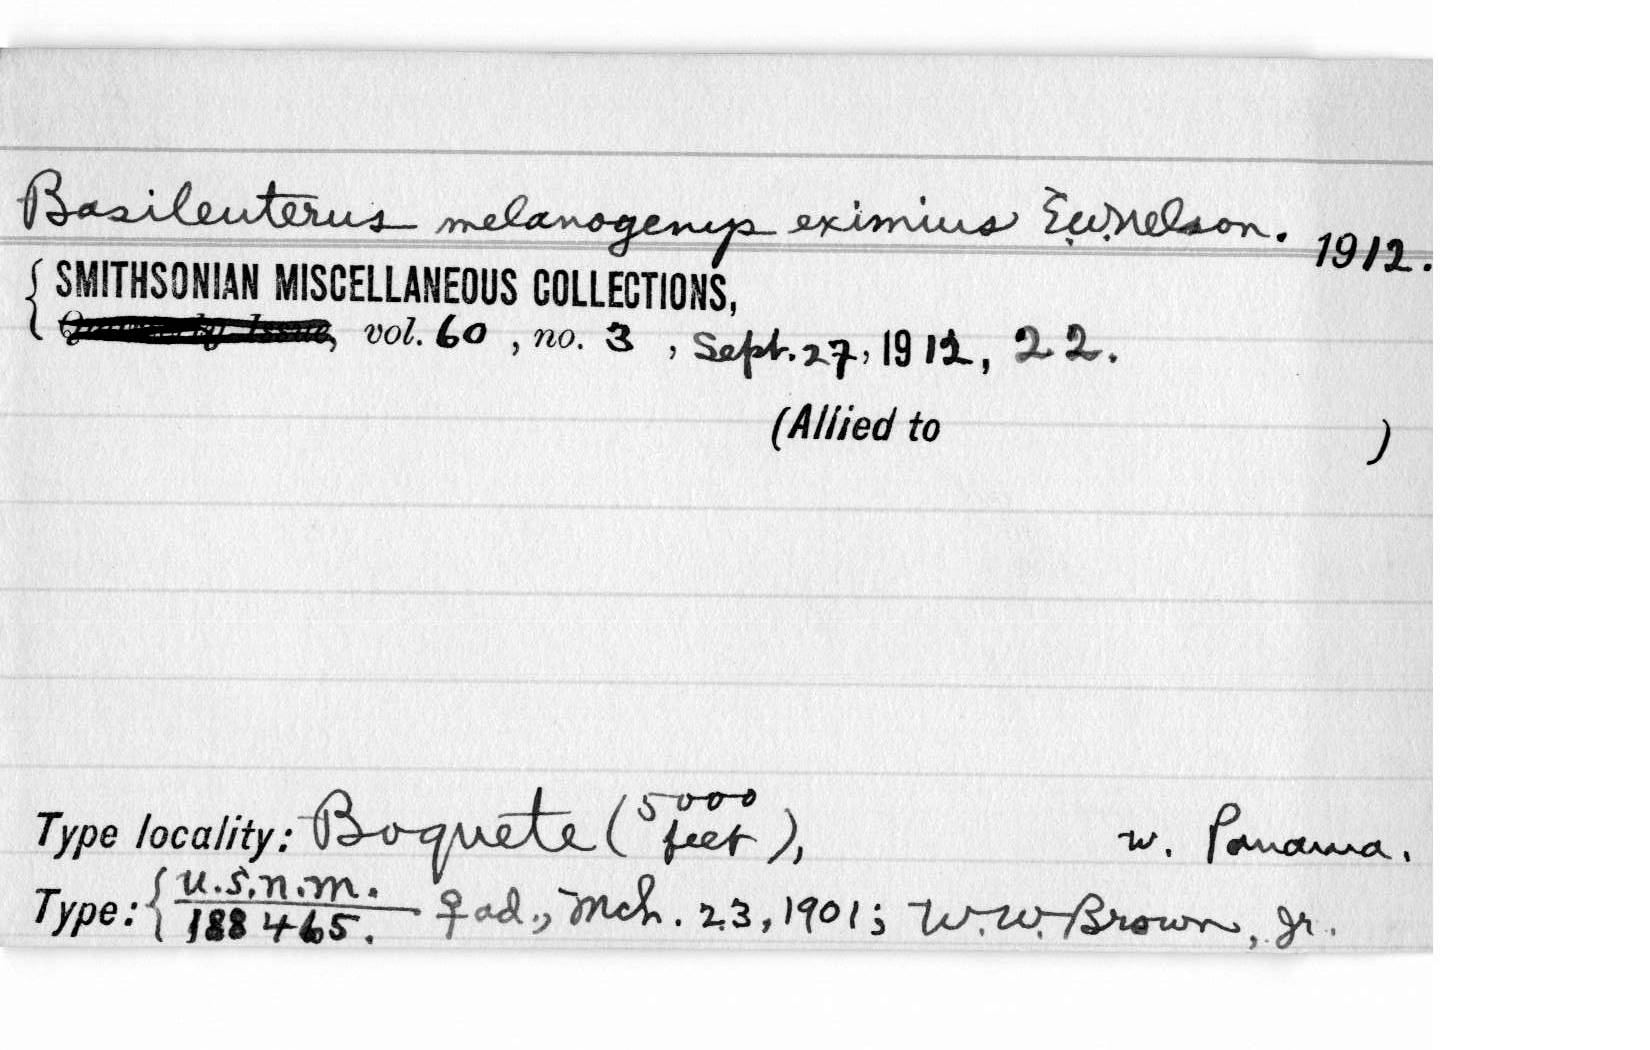 Basileuterus melanogenys eximius E.W. Nelson. 1912.
SMITHSONIAN MISCELLANEOUS COLLECTIONS,
Quarterly Issue, vol. 60, no. 3, Sept. 27, 1912, 22.
(Allied to )
Type locality: Boquete (5000 feet), W. Panama.
Type: U.S.N.M. 188465. ♀ ad., Mch. 23, 1901; W.W. Brown, Jr.